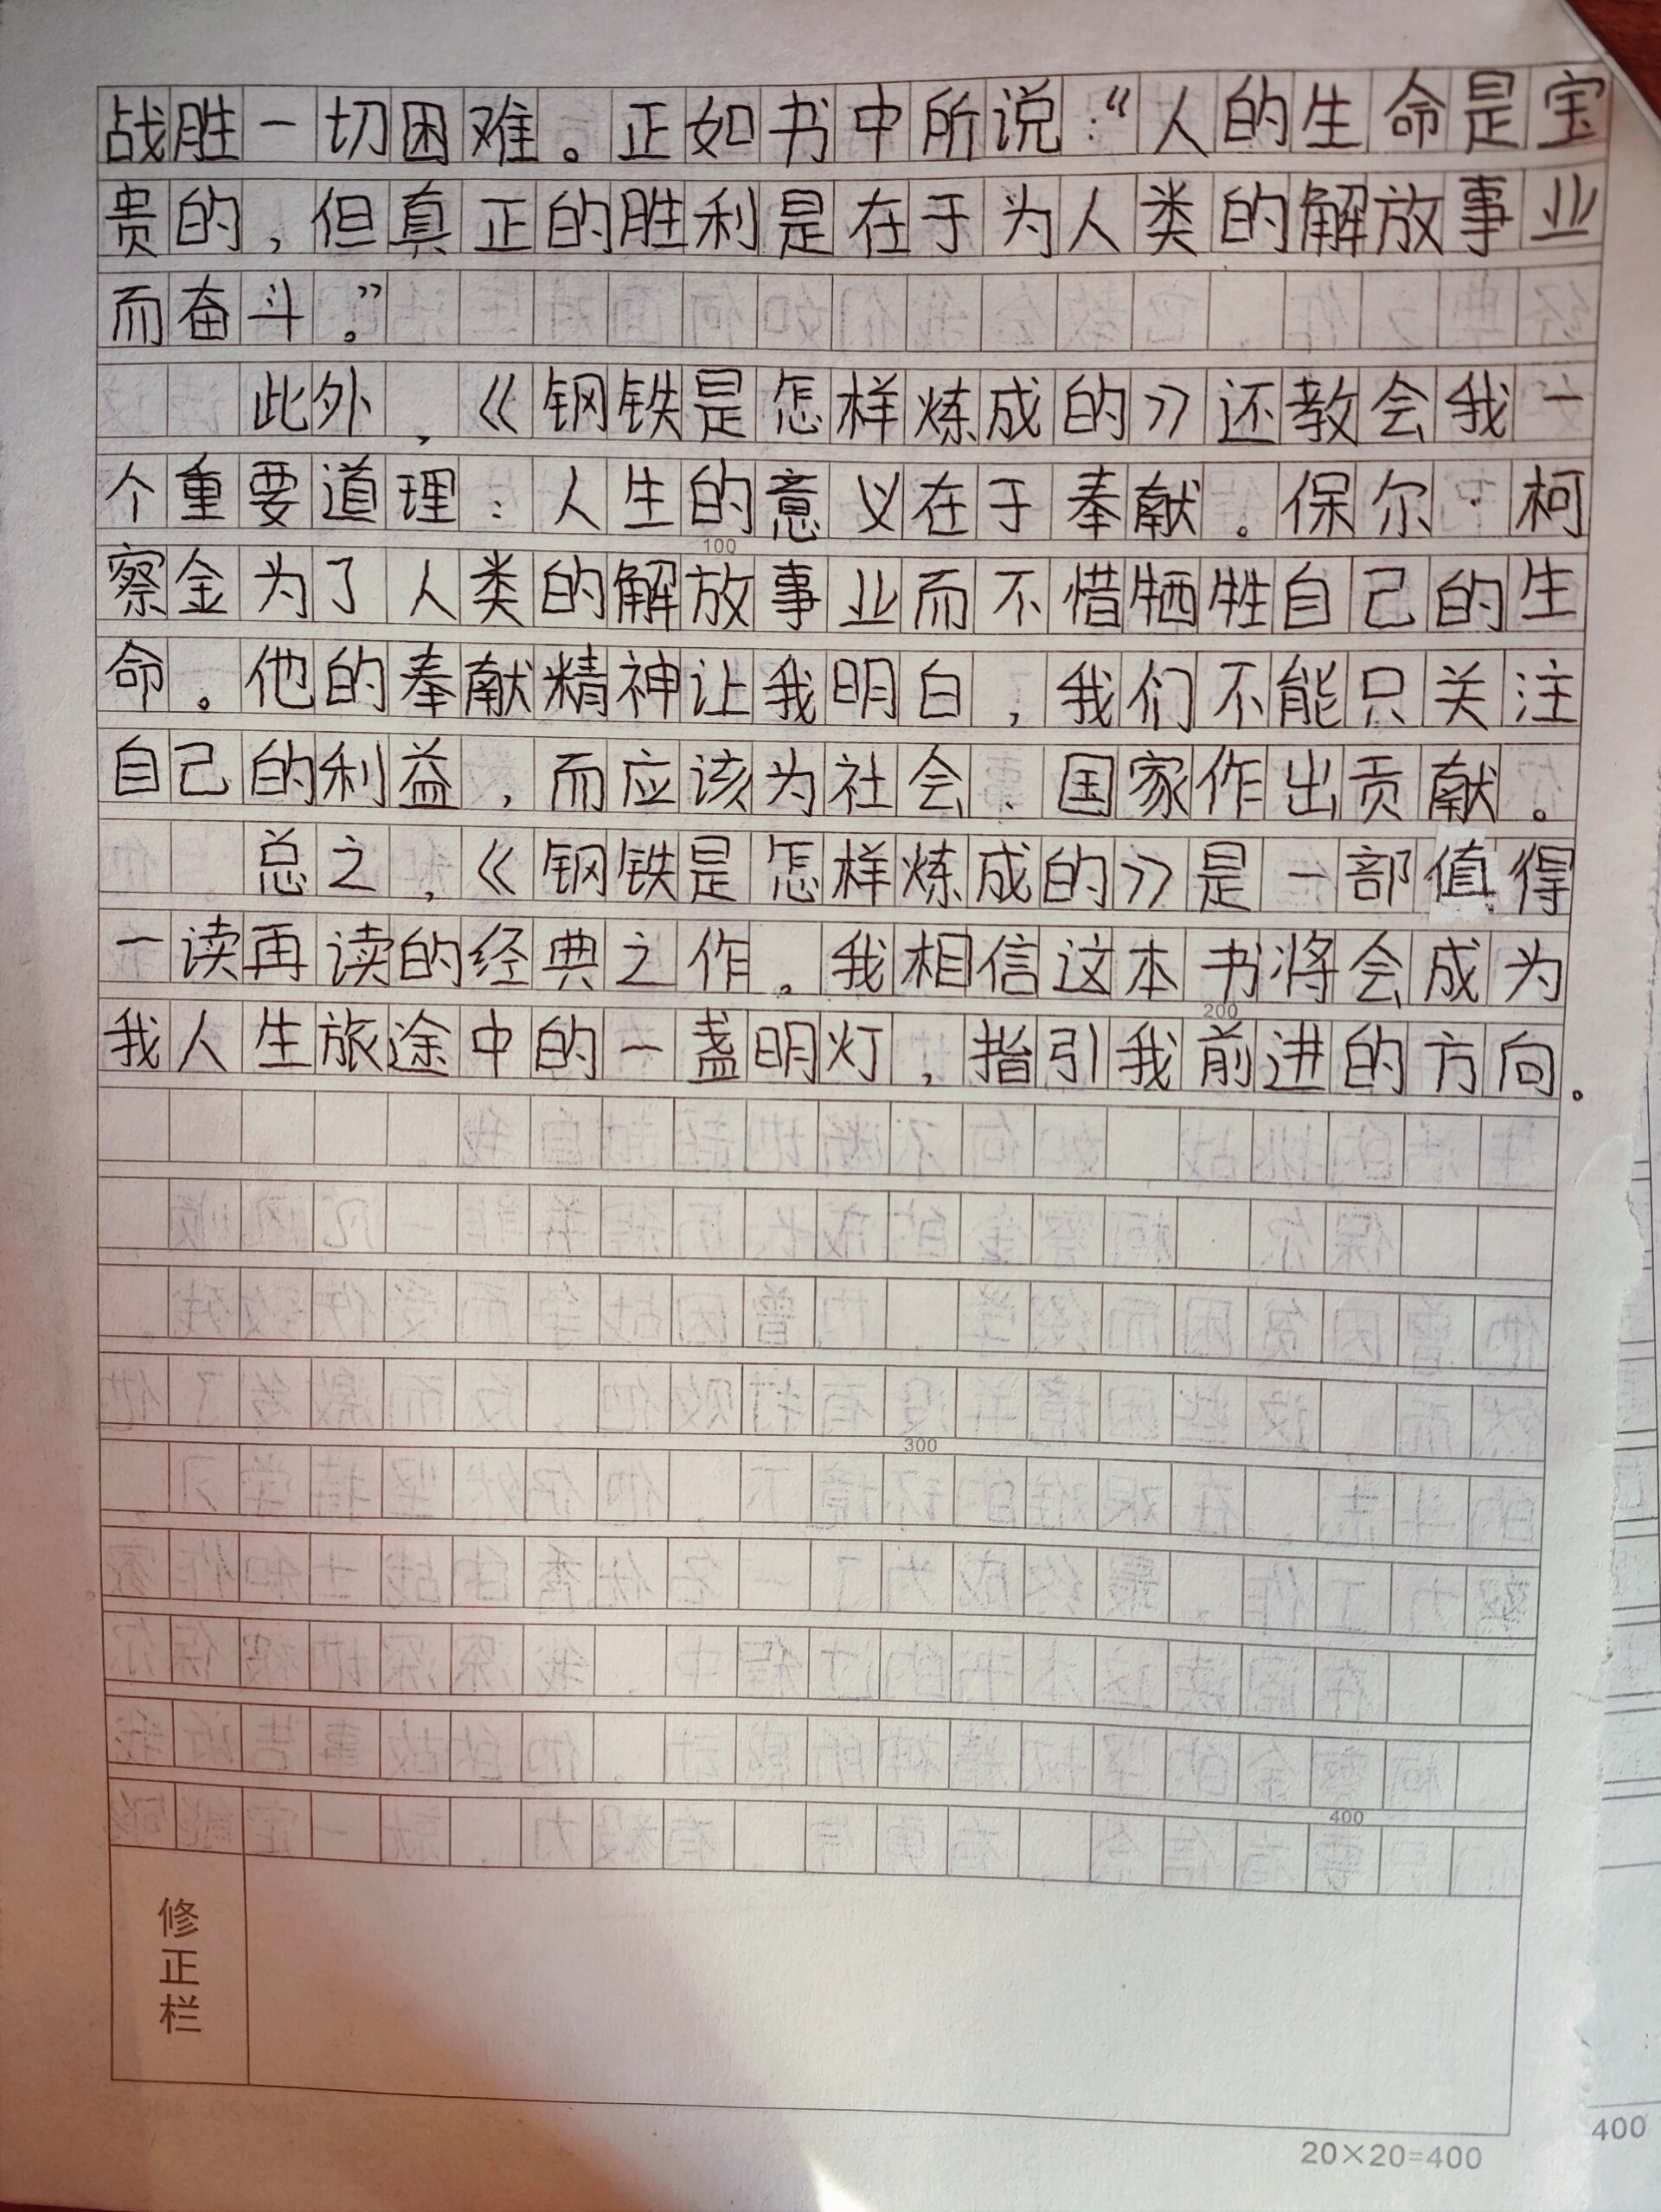 战胜一切困难。正如书中所说:“人的生命是宝
贵的,但真正的胜利是在于为人类的解放事业
而奋斗。”
此外,《钢铁是怎样炼成的》还教会我一
个重要道理:人生的意义在于奉献。保尔·柯
察金为了人类的解放事业而不惜牺牲自己的生
命。他的奉献精神让我明白,我们不能只关注
自己的利益,而应该为社会、国家作出贡献。
总之,《钢铁是怎样炼成的》是一部值得
一读再读的经典之作。我相信这本书将会成为
我人生旅途中的一盏明灯,指引我前进的方向。
100
200
300
400
修正栏
20×20=400
400